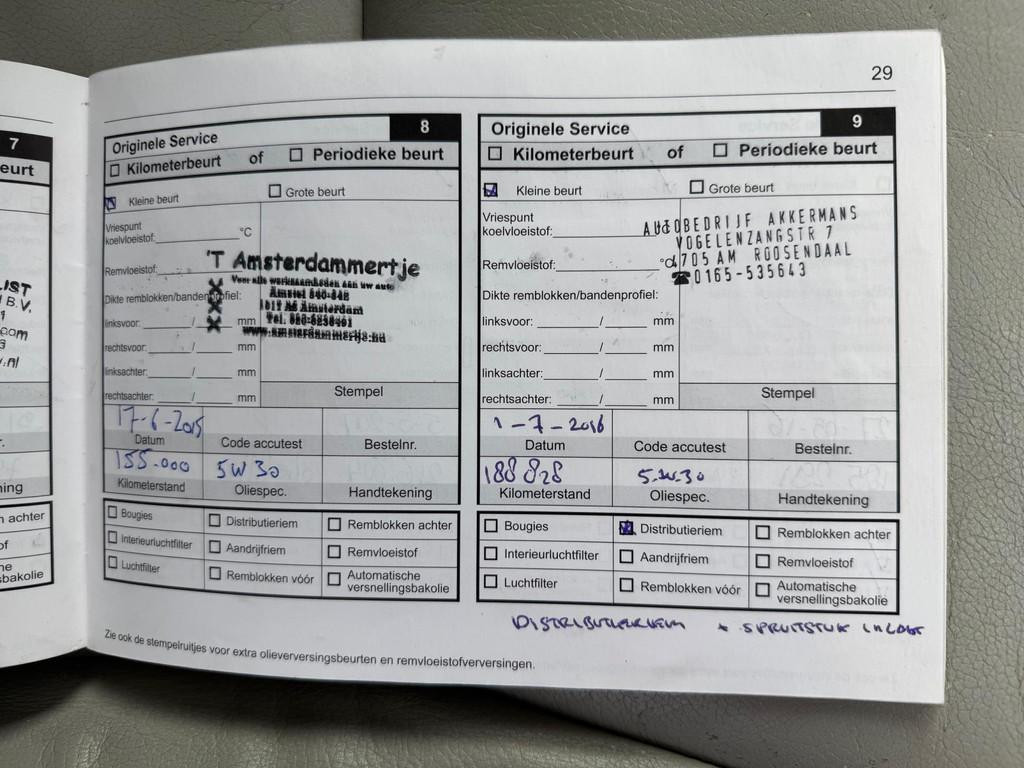 29
7
eurt
LIST
B.V.
1
com
ing
achter
of
he
sbakolie
Originele Service
8
Kilometerbeurt of Periodieke beurt
Kleine beurt Grote beurt
Vriespunt
koelvloeistof: °C
Remvloeistof:
'T Amsterdammertje
Voor alle werkzaamheden aan uw auto
Amstel 340-342
1017 AS Amsterdam
Tel. 020-6238491
www.amsterdammertje.nu
Dikte remblokken/bandenprofiel:
linksvoor: / mm
rechtsvoor: / mm
linksachter: / mm
rechtsachter: / mm
Stempel
17-6-2015
Datum Code accutest Bestelnr.
155.000 5W30
Kilometerstand Oliespec. Handtekening
Bougies Distributieriem Remblokken achter
Interieurluchtfilter Aandrijfriem Remvloeistof
Luchtfilter Remblokken vóór Automatische
versnellingsbakolie
Originele Service
9
Kilometerbeurt of Periodieke beurt
Kleine beurt Grote beurt
Vriespunt
koelvloeistof:
Remvloeistof:
AUTOBEDRIJF AKKERMANS
VOGELENZANGSTR 7
4705 AM ROOSENDAAL
☎0165-535643
Dikte remblokken/bandenprofiel:
linksvoor: / mm
rechtsvoor: / mm
linksachter: / mm
rechtsachter: / mm
Stempel
1-7-2016
Datum Code accutest Bestelnr.
188 828 5.W.30
Kilometerstand Oliespec. Handtekening
Bougies Distributieriem Remblokken achter
Interieurluchtfilter Aandrijfriem Remvloeistof
Luchtfilter Remblokken vóór Automatische
versnellingsbakolie
DISTRIBUTIERIEM + SPRUITSTUK INLAAT
Zie ook de stempelruitjes voor extra olieverversingsbeurten en remvloeistofverversingen.